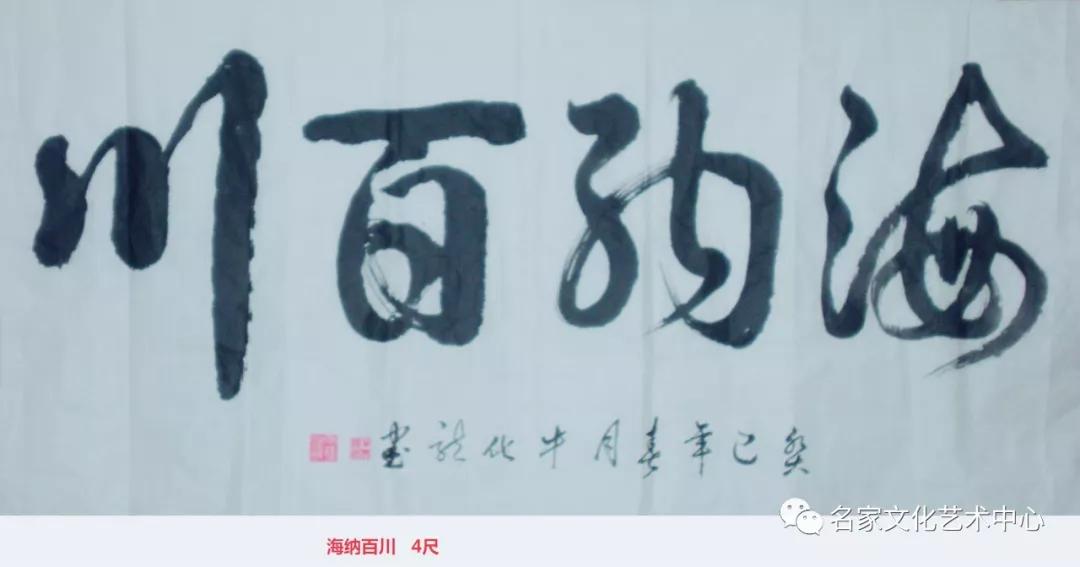 海纳百川
癸巳年春月牛化龙书
名家文化艺术中心
海纳百川 4尺